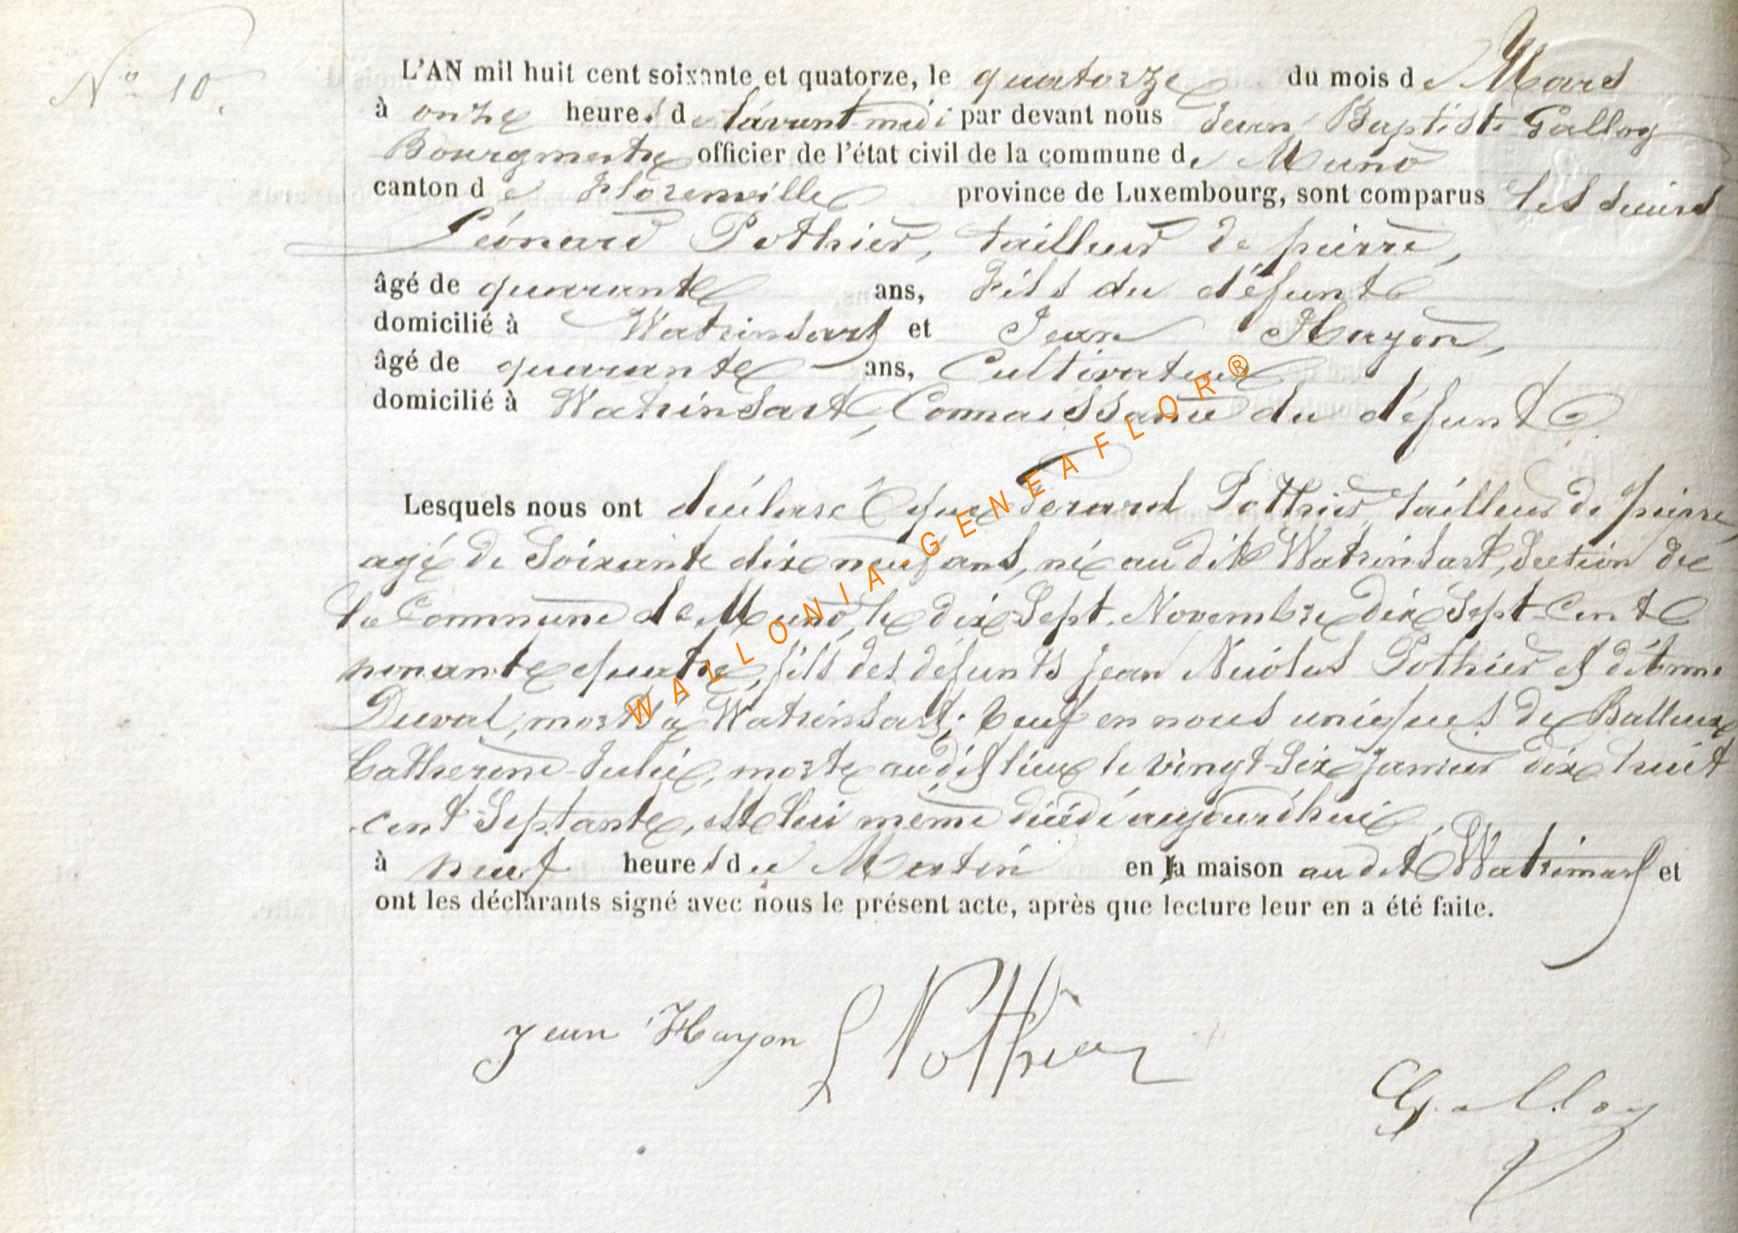 N° 10.
L'AN mil huit cent soixante et quatorze, le quatorze du mois de Mars
à onze heures de l'avant midi par devant nous Jean Baptiste Galloy
Bourgmestre officier de l'état civil de la commune de Muno
canton de Florenville province de Luxembourg, sont comparus les sieurs
Léonard Pothier, tailleur de pierre,
âgé de quarante ans, fils du défunt
domicilié à Watrinsart et Jean Hayon,
âgé de quarante ans, Cultivateur
domicilié à Watrinsart, Connaissance du défunt
Lesquels nous ont déclaré que Gerard Pothier tailleur de pierre
agé de Soixante dix neuf ans, né au dit Watrinsart, Section de
la Commune de Muno, le dix Sept Novembre dix Sept Cent
nonante quatre, fils des défunts Jean Nicolas Pothier et d'
Duval, morts à Watrinsart; veuf en nous uniques de Balleux
Catherine Julie, morte au dit lieu le vingt Six Janvier dix huit
cent Septante, et lui même décédé aujourdhui
à neuf heures du Matin en la maison au dit Watrinsart et
ont les déclarants signé avec nous le présent acte, après que lecture leur en a été faite.
Jean Hayon L Pothier
Galloy
WALLONIA-GENEAFLOR®